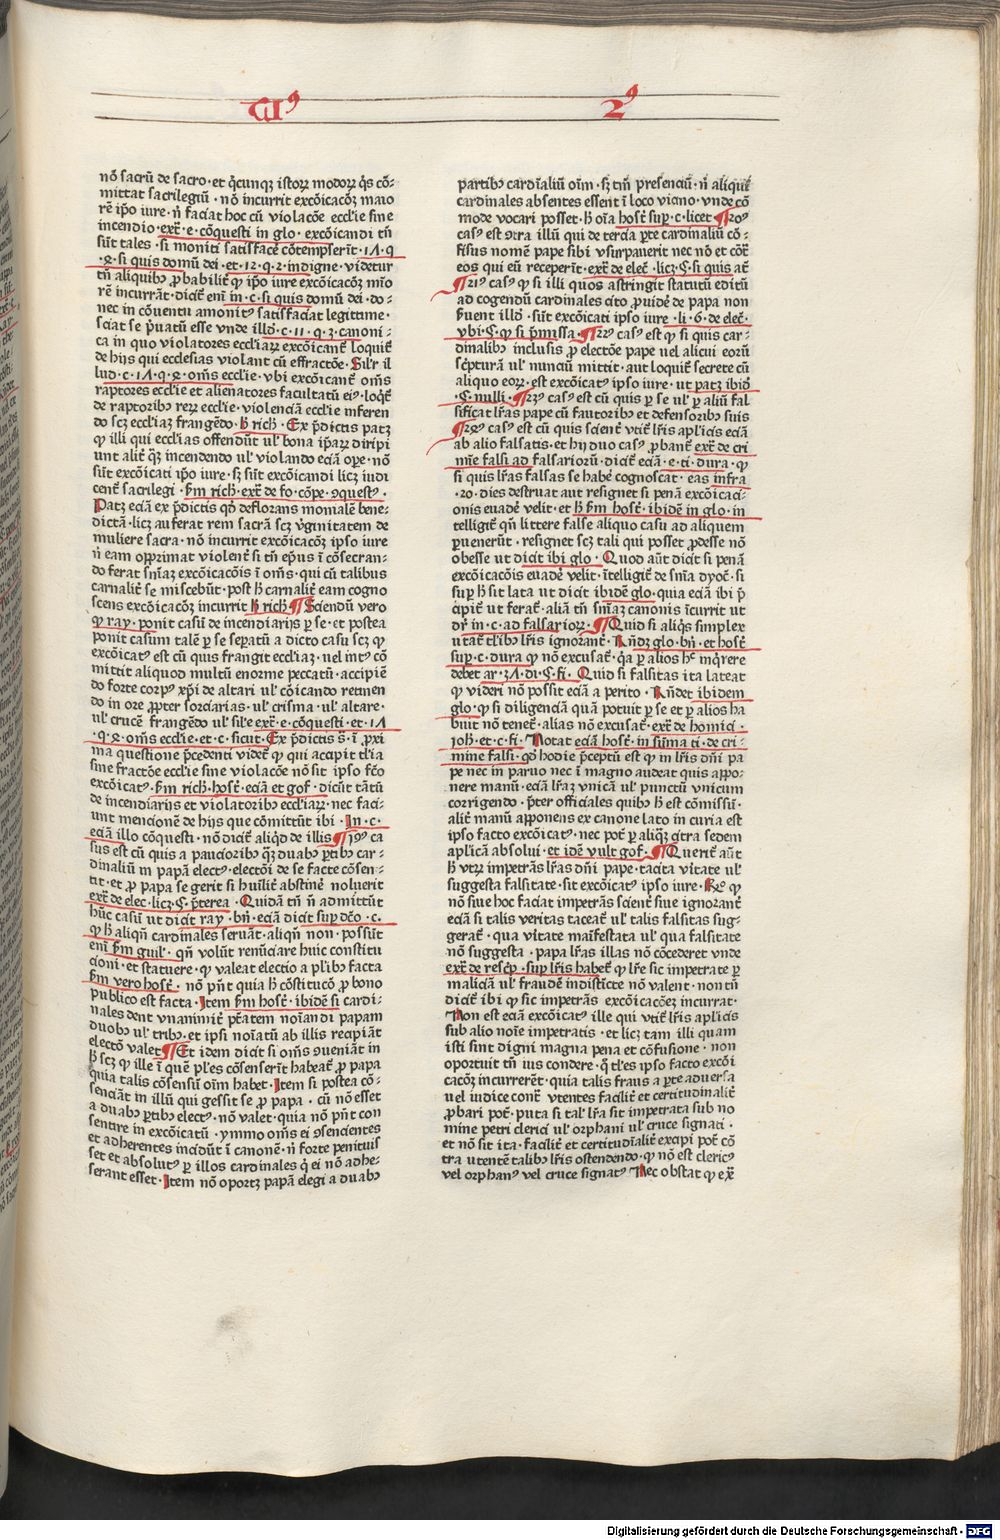 VIꝰ 2ꝰ
nō sacrū de sacro · et q̄cunqꝫ istoꝝ modoꝝ q̄s cō-
mittat sacrilegiū · nō incurrit excōicacōꝫ maio
rē ip̄o iure · n̄ faciat hoc cū violacōe ecclīe sine
incendio · extͣ · e · cōquesti in glo · excōicandi tn̄
sūt tales · si moniti satisfacͤ cōtempserīt · 17 · q
· 4 · si quis domū dei · et · 12 · q · 2 · indigne · videtur
tn̄ aliquibꝰ ꝓbabilit̄ ꝙ ip̄o iure excōicacōꝫ mīo
rē incurrāt · dicit̄ enī in · c · si quis domū dei · do-
nec in cōuentu amonitꝰ satisfaciat legittime ·
sciat se p̄uatū esse vnde illd̄ · c · 11 · q · 3 · canoni-
ca in quo violatores eccliaꝝ excōicant̄ loquit̄
de hijs qui ecclesias violant cū effractōe · Silr̄ il
lud · c · 17 · q · 4 · oms̄ ecclīe · vbi excōicant̄ oms̄
raptores ecclīe et alienatores facultatū eiꝰ · loqt̄
de raptoribꝰ reꝝ ecclīe · violenciā ecclīe inferen
do scꝫ eccliaꝫ frangēdo · h̄ rich̄ · Ex p̄dictis patꝫ
ꝙ illi qui ecclias offendūt ul' bona ip̄aꝝ diripi
unt alit̄ qꝫ incendendo ul' violando eciā oꝑe · nō
sūt excōicati ip̄o iure · sꝫ sūt excōicandi licꝫ iudi
cent̄ sacrilegi · h̄m rich̄ · extͣ de fo · cōpe · ꝯquestꝰ ·
Patꝫ eciā ex p̄dictis qd̄ deflorans momalē bene-
dictā · licꝫ auferat rem sacrā scꝫ v̄ginitatem de
muliere sacra · nō incurrit excōicacōꝫ ipso iure
n̄ eam opprimat violent̄ si tn̄ ep̄us ī cōsecran-
do ferat sn̄iaꝫ excōicacōis ī oms̄ · qui cū talibus
carnalit̄ se miscebūt · post h̄ carnalit̄ eam cogno
scens excōicacōꝫ incurrit h̄ rich̄ ¶ Sciendū vero
ꝙ ray · ponit casū de incendiarijs ꝑ se · et postea
ponit casum talē ꝑ se seꝑatū a dicto casu scꝫ ꝙ
excōicatꝰ est cū quis frangit eccliaꝫ · vel intꝰ cō
mittit aliquod multū enorme peccatū · accipiē
do forte corpꝰ xp̄i de altari ul' cōicando retinen
do in ore ꝓpter sorciarias · ul' crisma · ul' altare ·
ul' crucē frangēdo ul' sil'e extͣ · e · cōquesti · et · 17
· q · 4 · oms̄ ecclīe · et · c · sicut · Ex p̄dictis s̄ · ī ꝓxi
ma questione p̄cedenti videt̄ ꝙ qui accipit tlīa
sine fractōe ecclīe sine violacōe nō sit ipso fcō
excōicatꝰ · h̄m rich̄ · host̄ · eciā et gof̄ · dicūt tātū
de incendiarijs et violatoribꝰ eccliaꝝ · nec faci-
unt mencionē de hijs que cōmittūt ibi · In · c ·
eciā illo cōquesti · nō dicit̄ aliqd̄ de illis ¶ 19ꝰ ca
sus est cū quis a paucioribꝰ qꝫ duabꝰ ꝑtibꝰ car-
dinaliū in papā electꝰ · electōi de se facte cōsen-
tit · et ꝓ papa se gerit si hūilit̄ abstinē noluerit
extͣ de elec · licꝫ · § · p̄terea · Quidā tn̄ n̄ admittūt
hūc casū ut dicit ray · bn̄ · eciā dicit suꝑ dc̄o · c ·
ꝙ h̄ aliqn̄ cardinales seruāt · aliqn̄ non · possūt
enī h̄m guil̄ · qn̄ volūt renūciare huic constitu
cioni · et statuere · ꝙ valeat electio a pl'ibꝰ facta
h̄m vero host̄ · nō pn̄t quia h̄ cōstitucō ꝓ bono
publico est facta · Item h̄m host̄ · ibidē si cardi-
nales dent vnanimit̄ p̄tatem noiandi papam
duobꝰ ul' tribꝰ · et ipsi noiatū ab illis recipiāt
electō valet ¶ Et idem dicit si oms̄ ꝯueniāt in
h̄ scꝫ ꝙ ille ī quē pl'es cōsenserīt habeat̄ ꝓ papa
quia talis cōsensū oīm habet · Item si postea cō-
senciāt in illū qui gessit se ꝓ papa · cū nō esset
a duabꝰ ꝑtibꝰ electꝰ · nō valet · quia nō pn̄t con
sentire in excōicatū · ymmo oms̄ ei ꝯsencientes
et adherentes incidūt ī canonē · n̄ forte penituis
set et absolutꝰ ꝑ illos cardinales q̄ ei nō adhe-
serant esset · Item nō oportꝫ papā elegi a duabꝰ
partibꝰ cardinaliū oīm · sꝫ tm̄ presenciū · n̄ aliqui
cardinales absentes essent ī loco vicino · vnde cō
mode vocari posset · h̄ oīa host̄ suꝑ · c · licet ¶ 20ꝰ
casꝰ est ꝯtra illū qui de tercia ꝑte cardinaliū cō-
fisus nomē pape sibi vsurpauerit nec nō et cōtͣ
eos qui eū receperīt · extͣ de elec̄ · licꝫ · § · si quis at̄
¶ 21ꝰ casꝰ ꝙ si illi quos astringit statutū editū
ad cogendū cardinales cito ꝓuidē de papa non
h̄uent illd̄ · sūt excōicati ipso iure · li · 6 · de elec̄ ·
vbi · § · ꝙ si p̄missa · ¶ 22ꝰ casꝰ est ꝙ si quis car-
dinalibꝰ inclusis ꝓ electōe pape vel alicui eorū
sc̄pturā ul' nunciū mittit · aut loquit̄ secrete cū
aliquo eoꝝ · est excōicatꝰ ipso iure · ut patꝫ ibid̄
· § · nulli · ¶ 23ꝰ casꝰ est cū quis ꝑ se ul' ꝑ aliū fal
sificat lr̄as pape cū fautoribꝰ et defensoribꝰ suis
¶ 24ꝰ casꝰ est cū quis scient̄ vtit̄ lr̄is apl'icis eciā
ab alio falsatis · et hij duo casꝰ ꝓbant̄ extͣ de cri
mīe falsi ad falsariorū · dicit̄ eciā · e · ti · dura · ꝙ
si quis lr̄as falsas se habē cognoscat · eas infra
· 20 · dies destruat aut resignet si penā excōicaci-
onis euadē velit · et h̄ h̄m host̄ · ibidē in glo · in
telligit̄ qn̄ littere false aliquo casu ad aliquem
ꝑuenerūt · resignet scꝫ tali qui posset ꝓdesse nō
obesse ut dicit ibi glo · Quod aūt dicit si penā
excōicacōis euadē velit · ītelligit̄ de sn̄ia dyoc̄ · si
suꝑ h̄ sit lata ut dicit ibidē glo · quia eciā ibi p̄
cipit̄ ut ferat̄ · aliā tn̄ sn̄iaꝫ canonis īcurrit ut
dr̄ in · c · ad falsarioꝝ · ¶ Quid si aliqs̄ simplex
utat̄ tl'ibꝰ lr̄is ignorant̄ · Rn̄dꝫ glo · bn̄ · et host̄
suꝑ · c · dura ꝙ nō excusat̄ · q̄a ꝑ alios hͨ inq̄rere
debet ar · 37 · di · § · fi · Quid si falsitas ita lateat
ꝙ videri nō possit eciā a perito · Rn̄det ibidem
glo · ꝙ si diligenciā quā potuit ꝑ se et ꝑ alios ha
buit nō tenet̄ · alias nō excusat̄ · extͣ de homici ·
ioh̄ · et · c · fi · Notat eciā host̄ · in sūma ti · de cri-
mine falsi · qd̄ hodie p̄ceptū est ꝙ in lr̄is dn̄i pa
pe nec in paruo nec ī magno audeat quis appo-
nere manū · eciā lr̄aꝫ vnicā ul' punctū vnicum
corrigendo · p̄ter officiales quibꝰ h̄ est cōmissū ·
alit̄ manū apponens ex canone lato in curia est
ipso facto excōicatꝰ · nec pot̄ ꝑ aliqꝫ citra sedem
apl'icā absolui · et idē vult gof̄ · ¶ Querit̄ aūt
h̄ vtꝝ impetrās lr̄as dn̄i pape · tacita v̄itate ul'
suggesta falsitate · sit excōicatꝰ ipso iure · Rͦ ꝙ
nō siue hoc faciat impetrās scient̄ siue ignorant̄
eciā si talis veritas taceat̄ ul' talis falsitas sug-
gerat̄ · qua v̄itate maīfestata ul' qua falsitate
nō suggesta · papa lr̄as illas nō cōcederet vnde
extͣ de resc̄p · suꝑ lr̄is habet̄ ꝙ lr̄e sic impetrate ꝑ
maliciā ul' fraudē indistīcte nō valent · non tn̄
dicit̄ ibi ꝙ sic impetrās excōicacōeꝫ incurrat ·
Non est eciā excōicatꝰ ille qui vtit̄ lr̄is apl'icis
sub alio noīe impetratis · et licꝫ tam illi quam
isti sint digni magna pena et cōfusione · non
oportuit tn̄ ius condere · q̄ tl'es ipso facto excōi
cacōꝫ incurrerēt · quia talis fraus a ꝑte aduersa
vel iudice contͣ vtentes facilit̄ et certitudinalit̄
ꝓbari pot̄ · puta si tal' lr̄a sit impetrata sub no
mine petri clerici ul' orphani ul' cruce signati ·
et nō sit ita · facilit̄ et certitudīalit̄ excipi pot̄ cō
tra utentē talibꝰ lr̄is ostendendo · ꝙ nō est clericꝰ
vel orphanꝰ vel cruce signatꝰ Nec obstat ꝙ extͣ
Digitalisierung gefördert durch die Deutsche Forschungsgemeinschaft - DFG